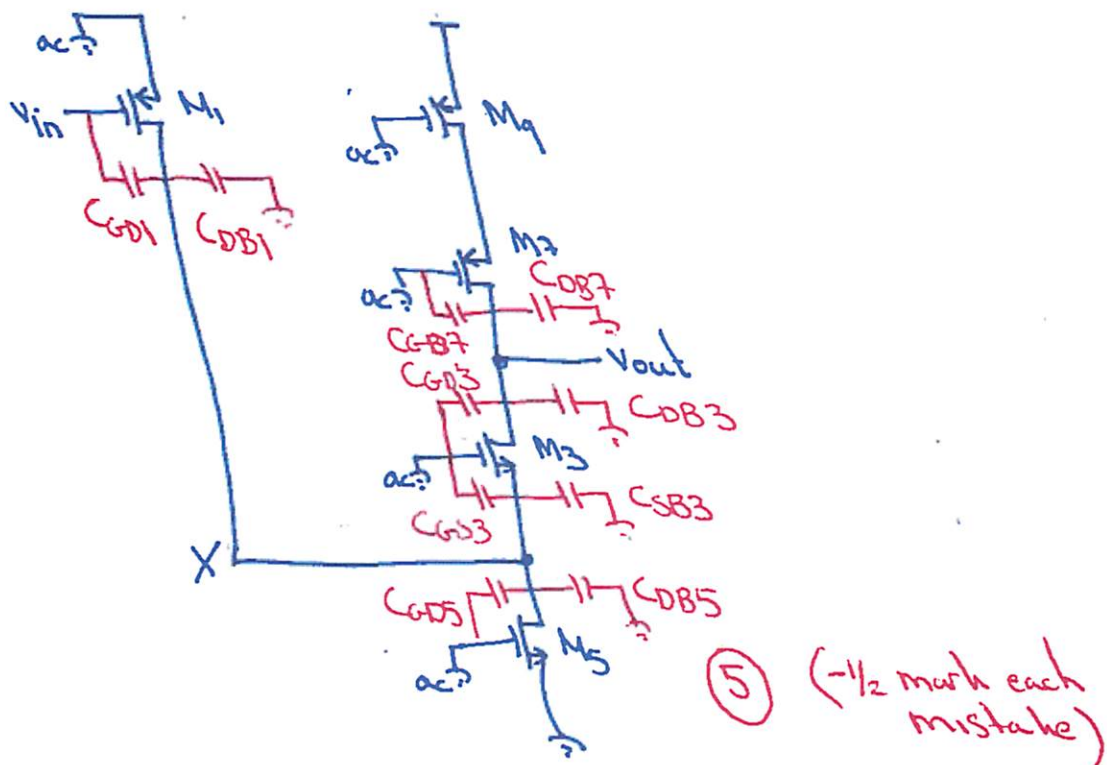 ac
Vin
M1
M9
ac
CGD1
CDB1
M7
ac
CDB7
CGD7
Vout
CGD3
CDB3
M3
ac
CSB3
CGS3
X
CGD5
CDB5
M5
ac
5 (-1/2 mark each
mistake)